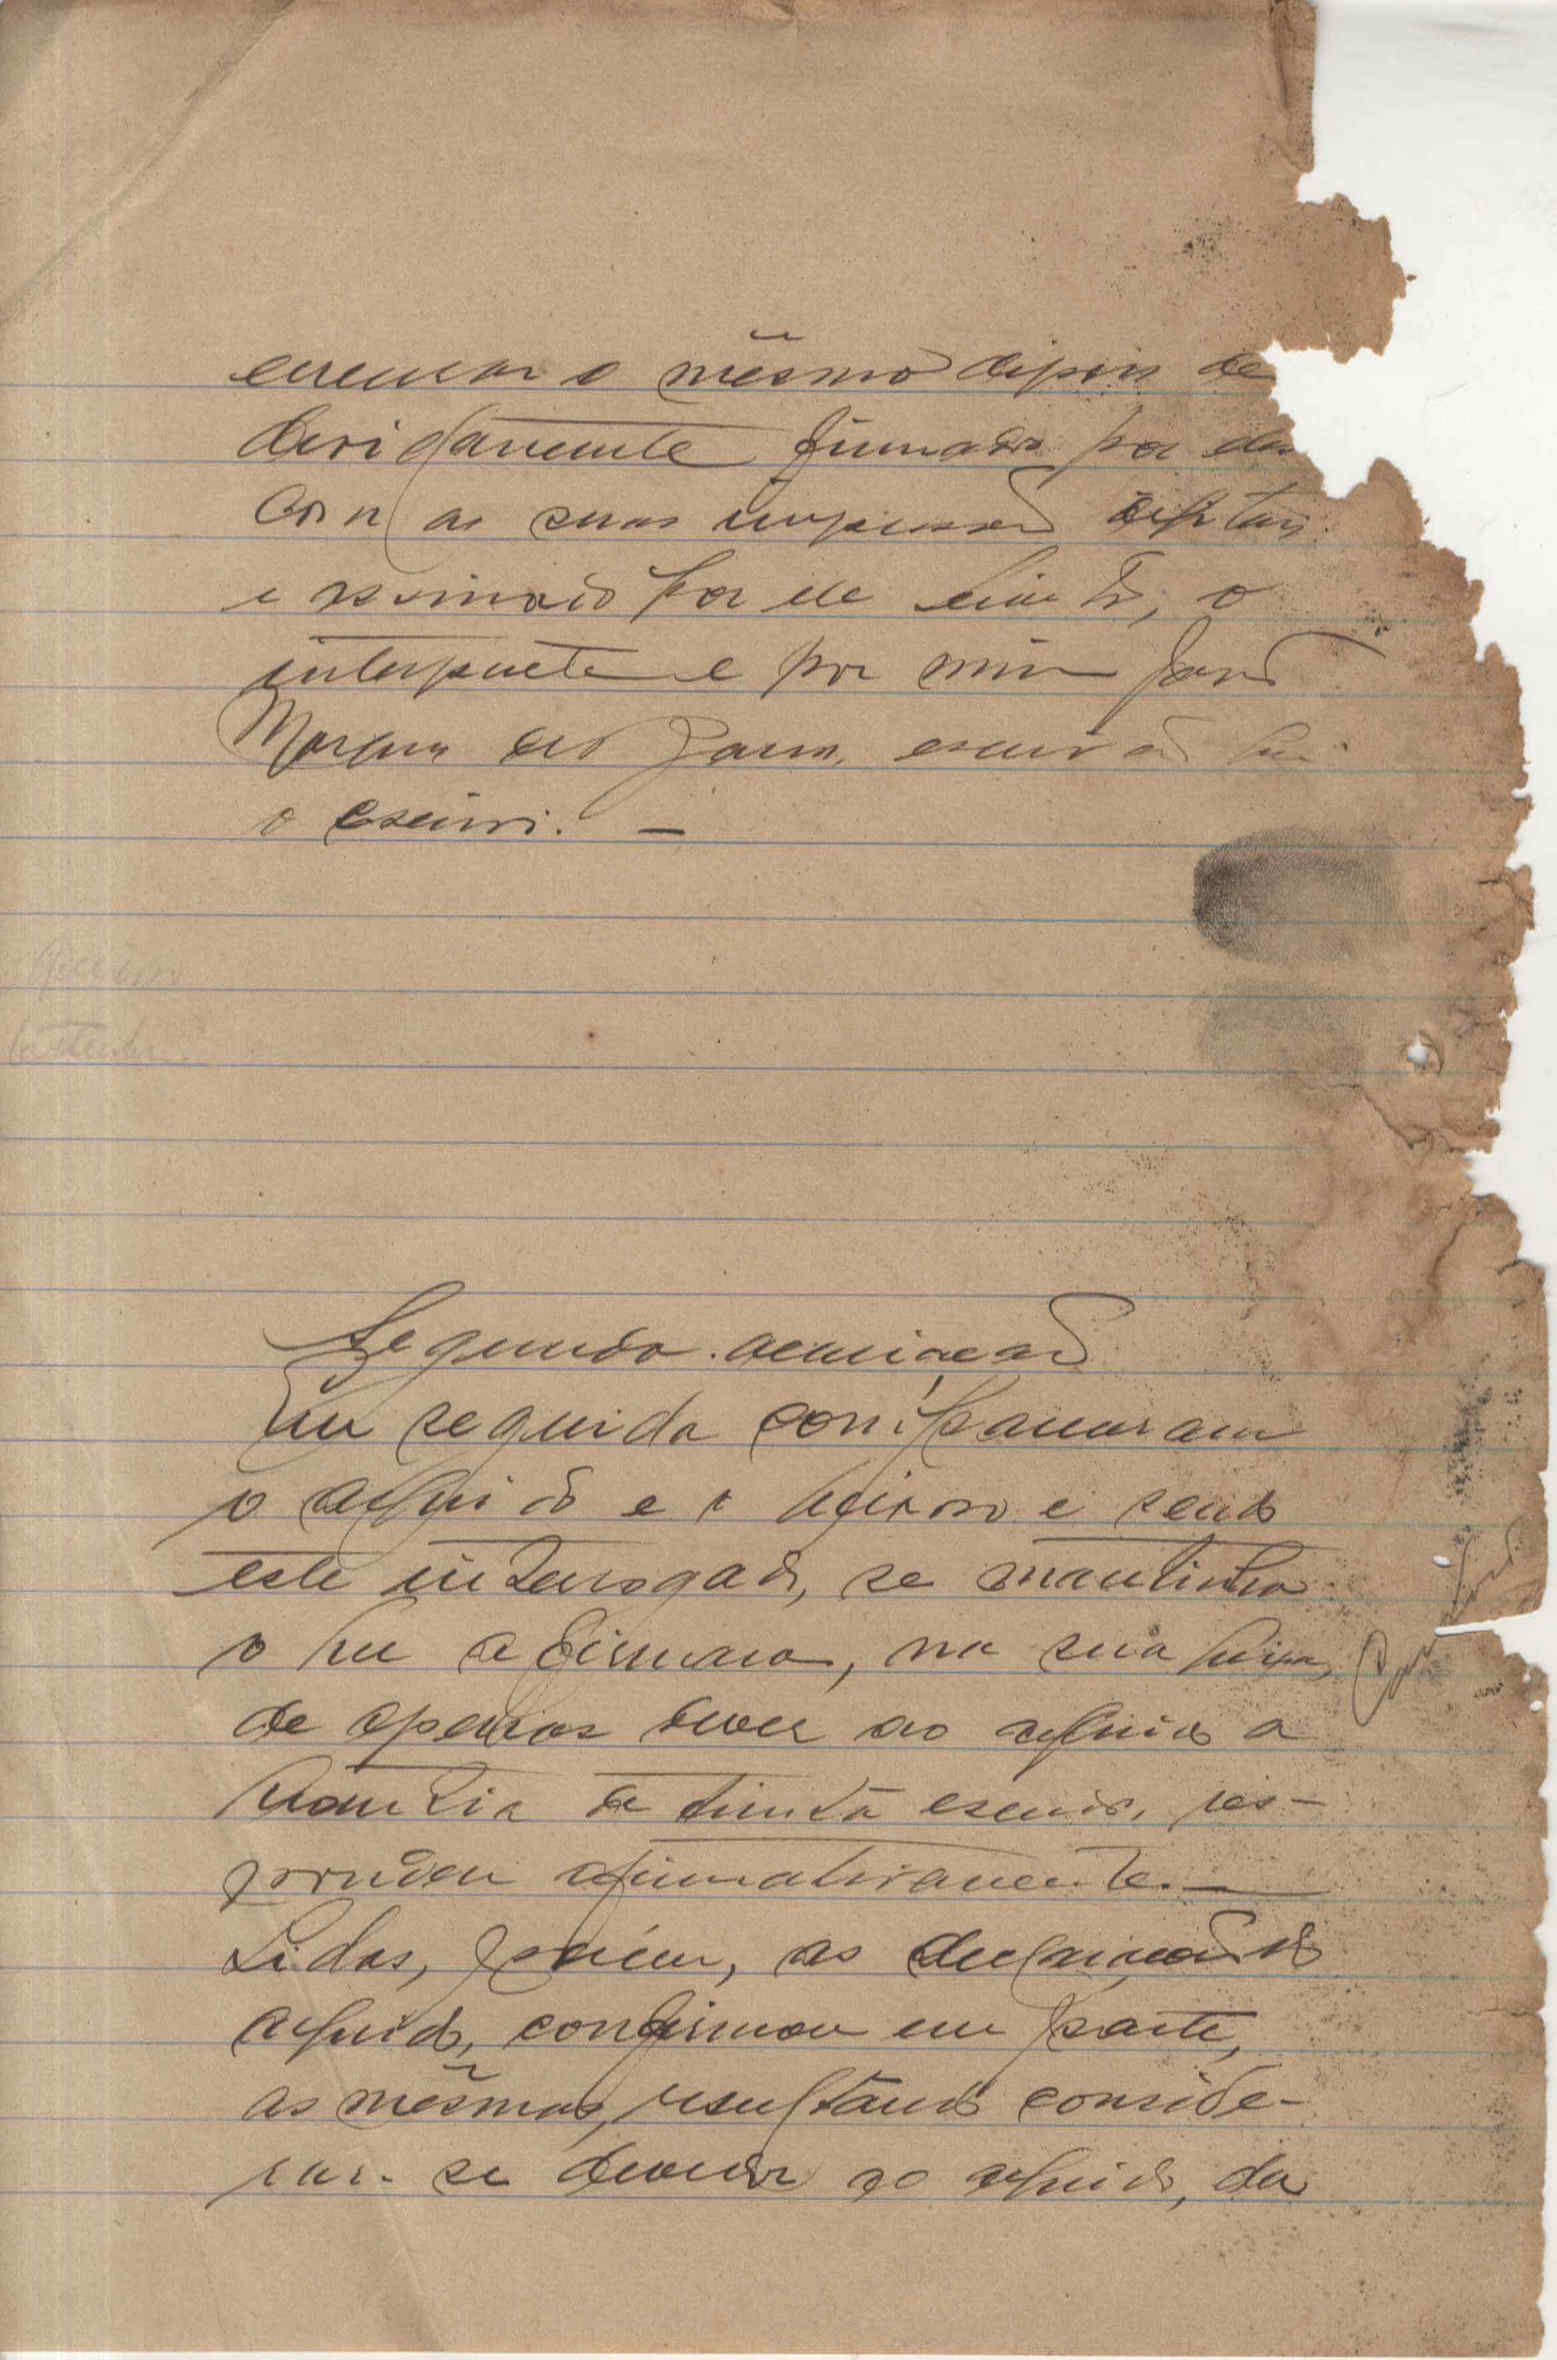 encerrar o mêsmo depois de
devidamente firmado por eles
com as suas impressões digitais
e assinado por ele
interprete e por mim João
escrivão que
o escrevi. —
Segunda acareação
Em seguida compareceram
o arguido e o queixoso e sendo
este interrogado, se mantinha
o que afirmara, na sua queixa,
de apenas dever ao arguido a
quantia de trinta escudos, res-
pondeu afirmativamente. —
Lidas, porém, as declarações do
arguido, confirmou em parte,
as mêsmas, resultando conside-
rar-se devedor ao arguido, da